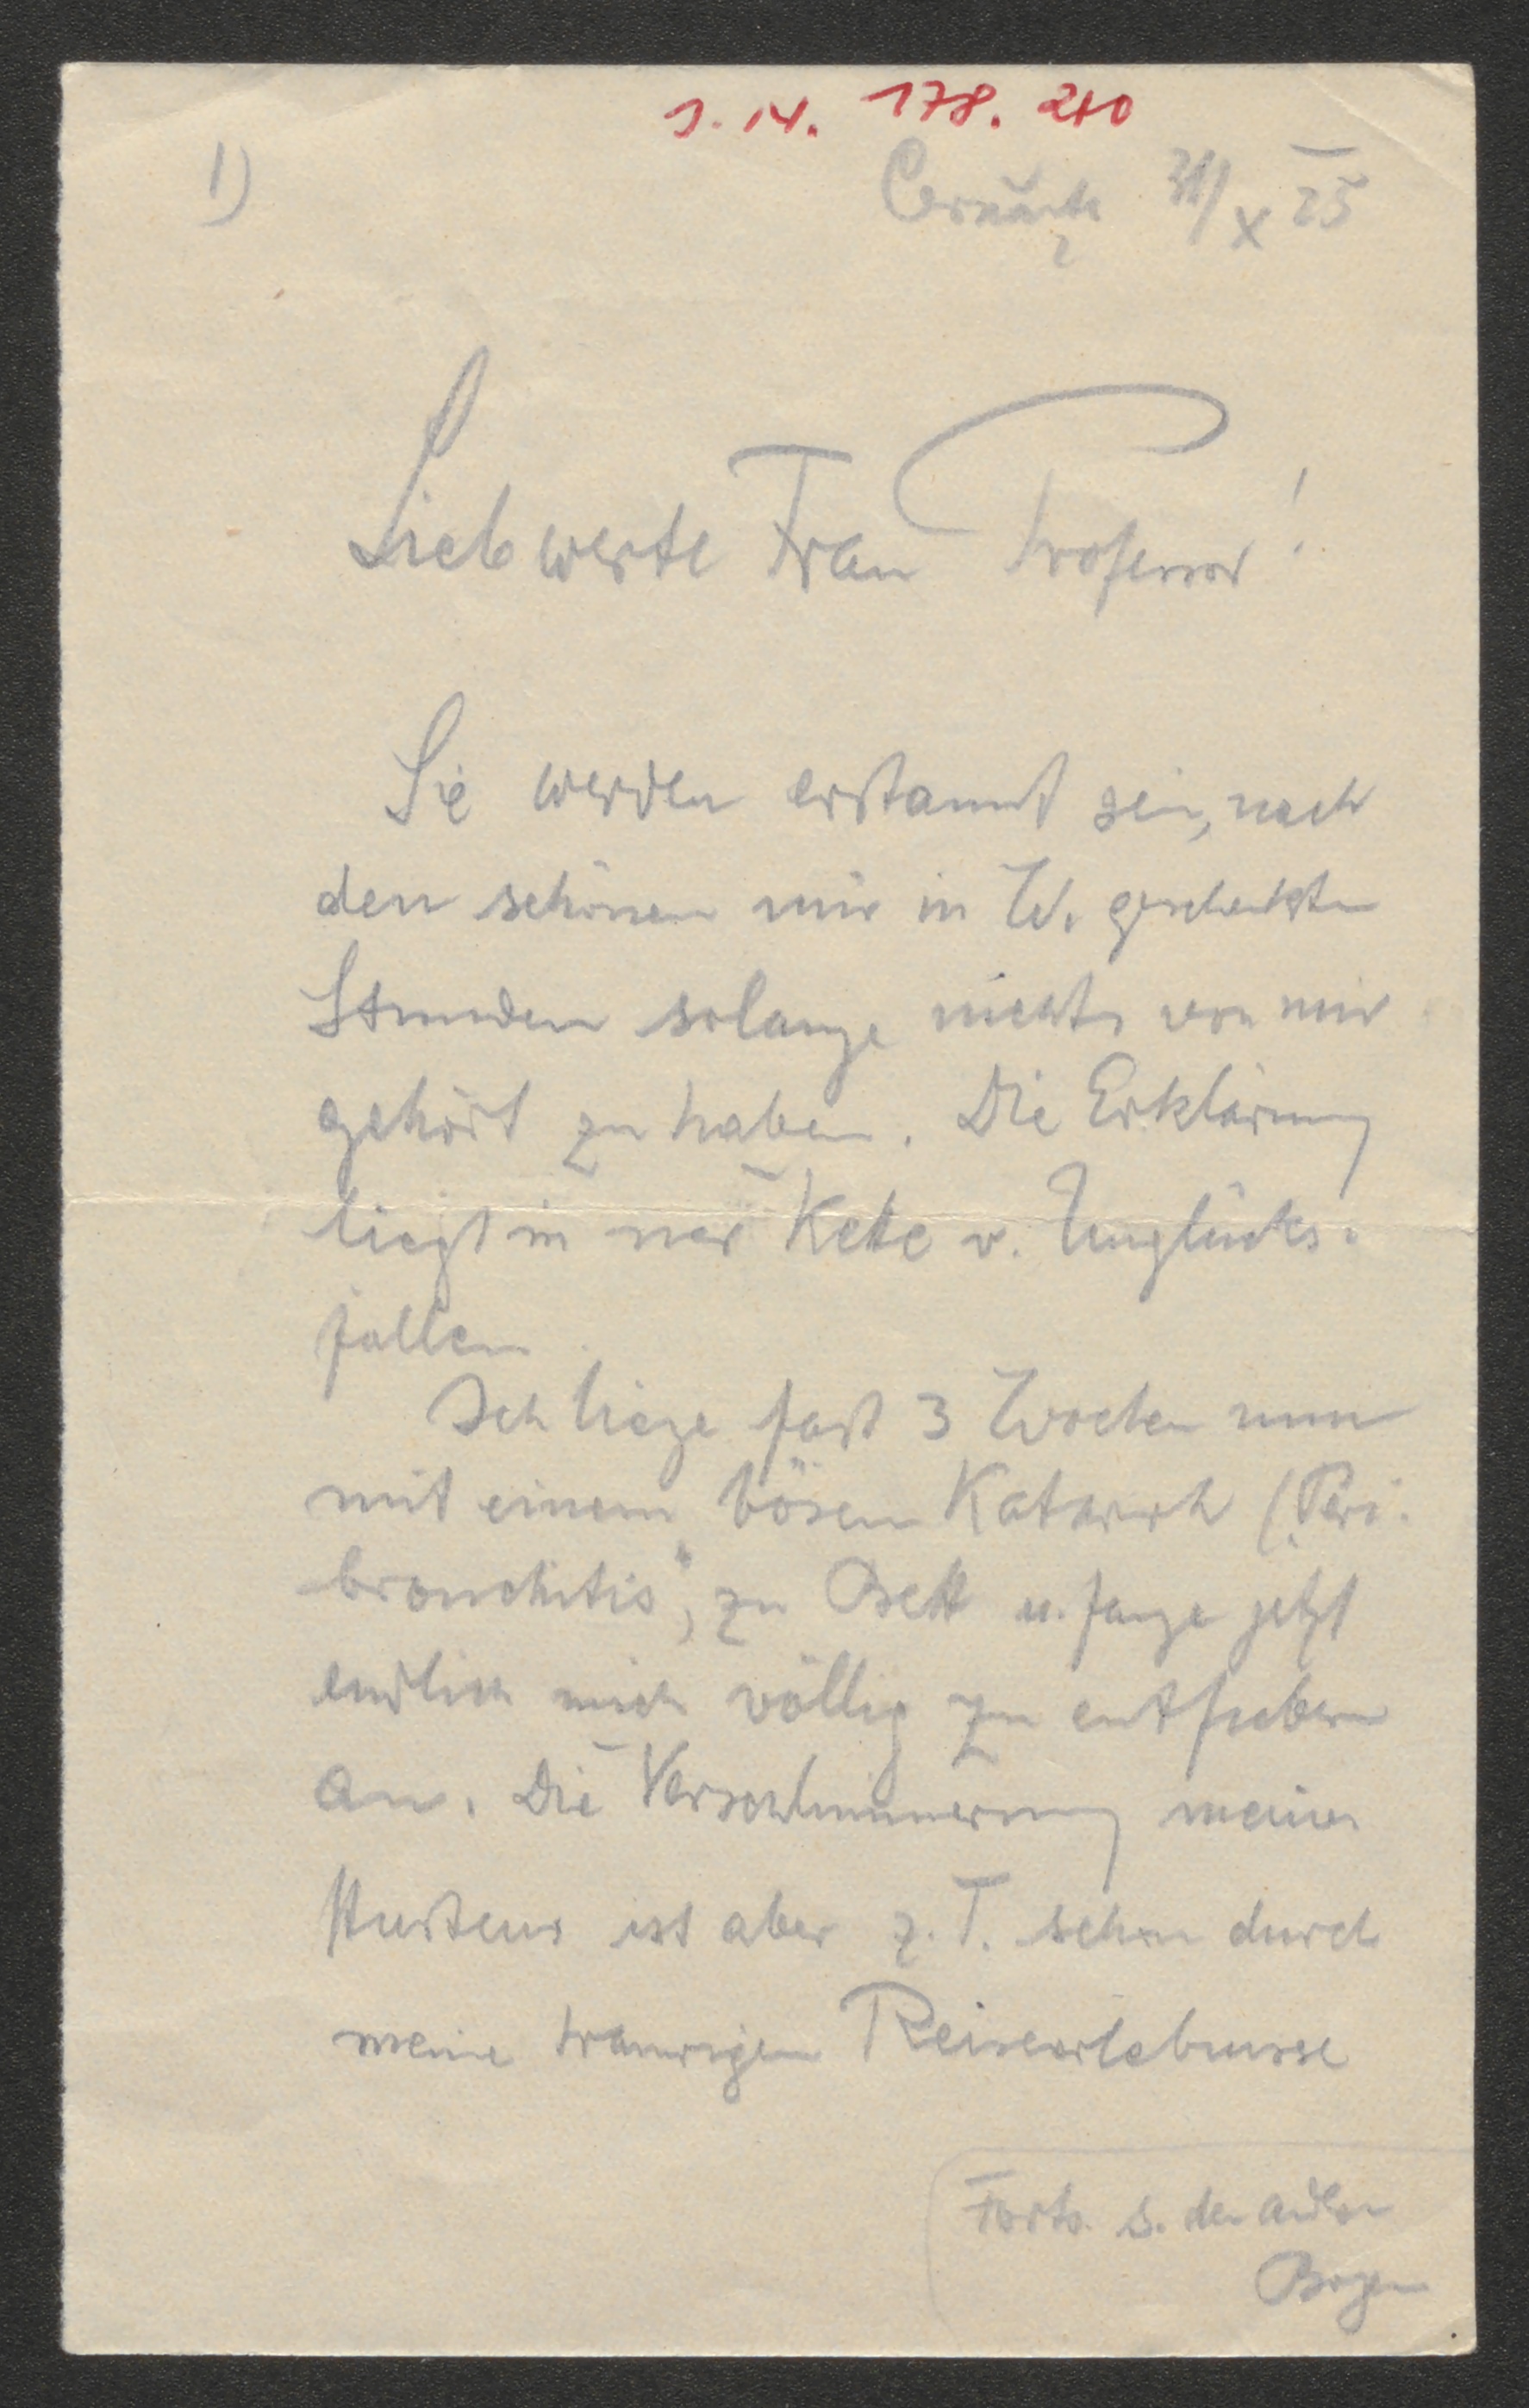 J. N. 178.210
1)
Cernăuți 31/X 25
Liebwerte Frau Professor!
Sie werden erstaunt sein, nach
den schönen mir in W. geschenkten
Stunden solange nichts von mir
gehört zu haben. Die Erklärung
liegt in ner Kette v. Unglücks-
fällen
Ich liege fast 3 Wochen nun
mit einem bösen Katarrh („Peri-
bronchitis“) zu Bett u. fange jetzt
endlich mich völlig zu entfiebern
an. Die Verschlimmerung meines
Hustens ist aber z. T. schon durch
meine traurigen Reiseerlebnisse
Forts. s. den andern
Bogen